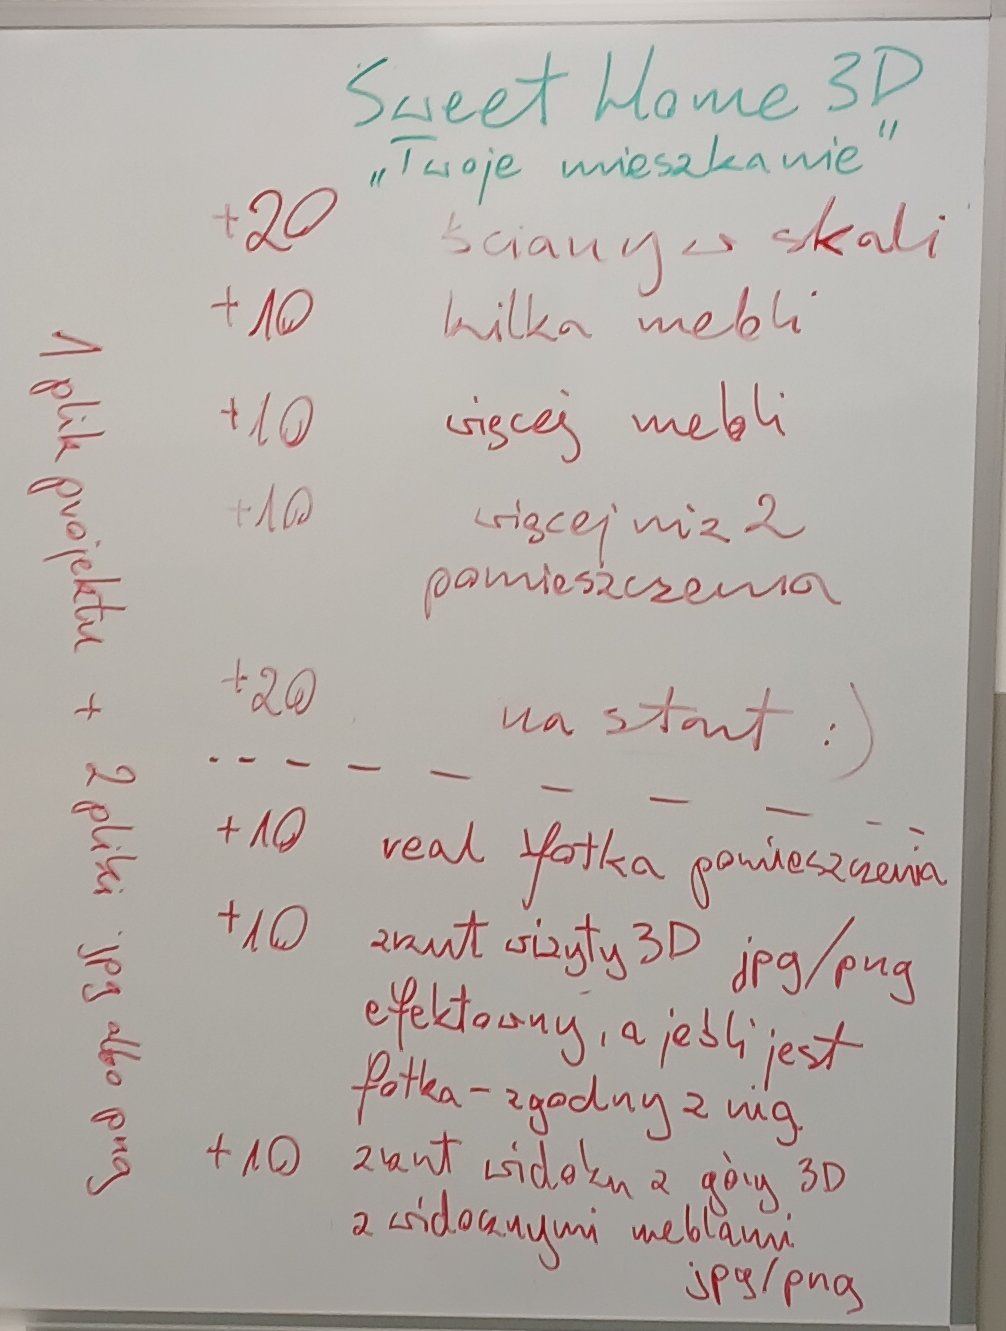 Sweet Home 3D
„Twoje mieszkanie"
+20 ściany w skali
+10 kilka mebli
+10 więcej mebli
+10 więcej niz 2
pomieszczenia
+20 na start :)
+10 real fotka pomieszczenia
+10 zrzut wizyty 3D jpg/png
efektowny, a jeśli jest
fotka - zgodny z nią
+10 zrzut widoku z góry 3D
z widocznymi meblami
jpg/png
1 plik projektu + 2 pliki jpg albo png